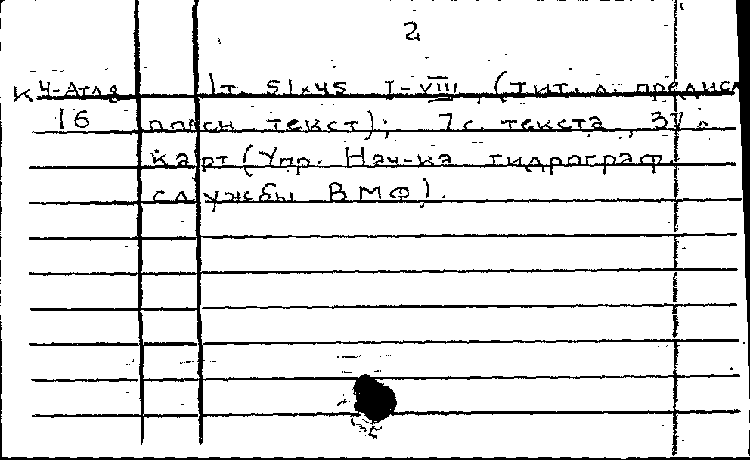 2
К 4-Атл 8 1т. 51×45 I-VIII, (Тит. л. предисл
16 поясн текст); 7 с. текста, 37 л
карт (Упр. Нач-ка гидрограф.
службы ВМФ).